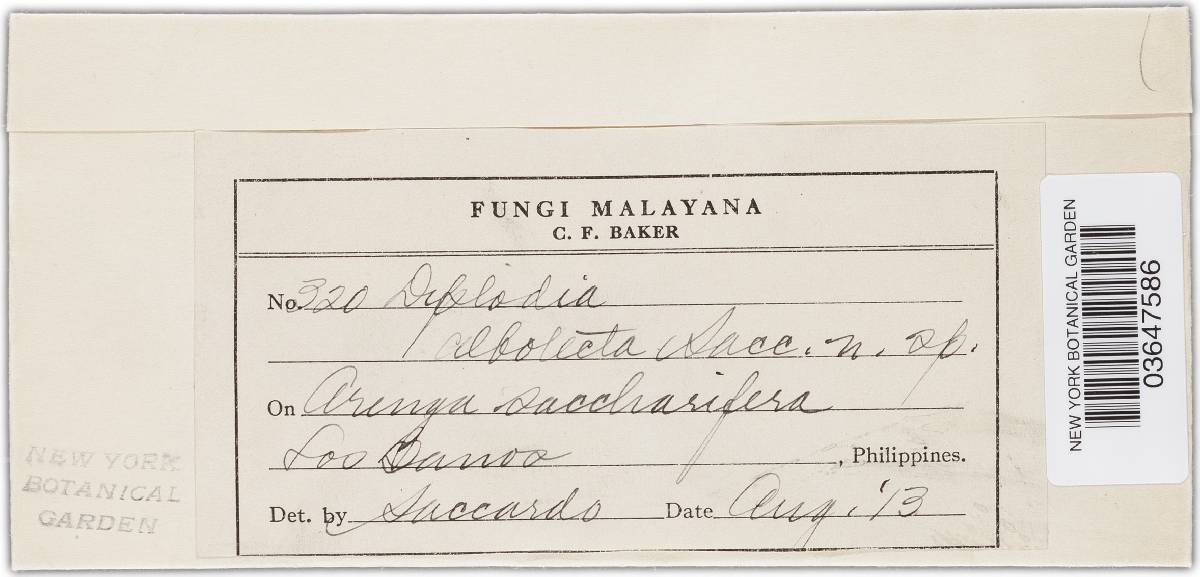 FUNGI MALAYANA
C. F. BAKER
No. 320 Diplodia
abolecta Sacc. n. sp.
On Arenga saccharifera
Los Banos, Philippines.
Det. by Saccardo Date Aug. '13
NEW YORK
BOTANICAL
GARDEN
NEW YORK BOTANICAL GARDEN
03647586